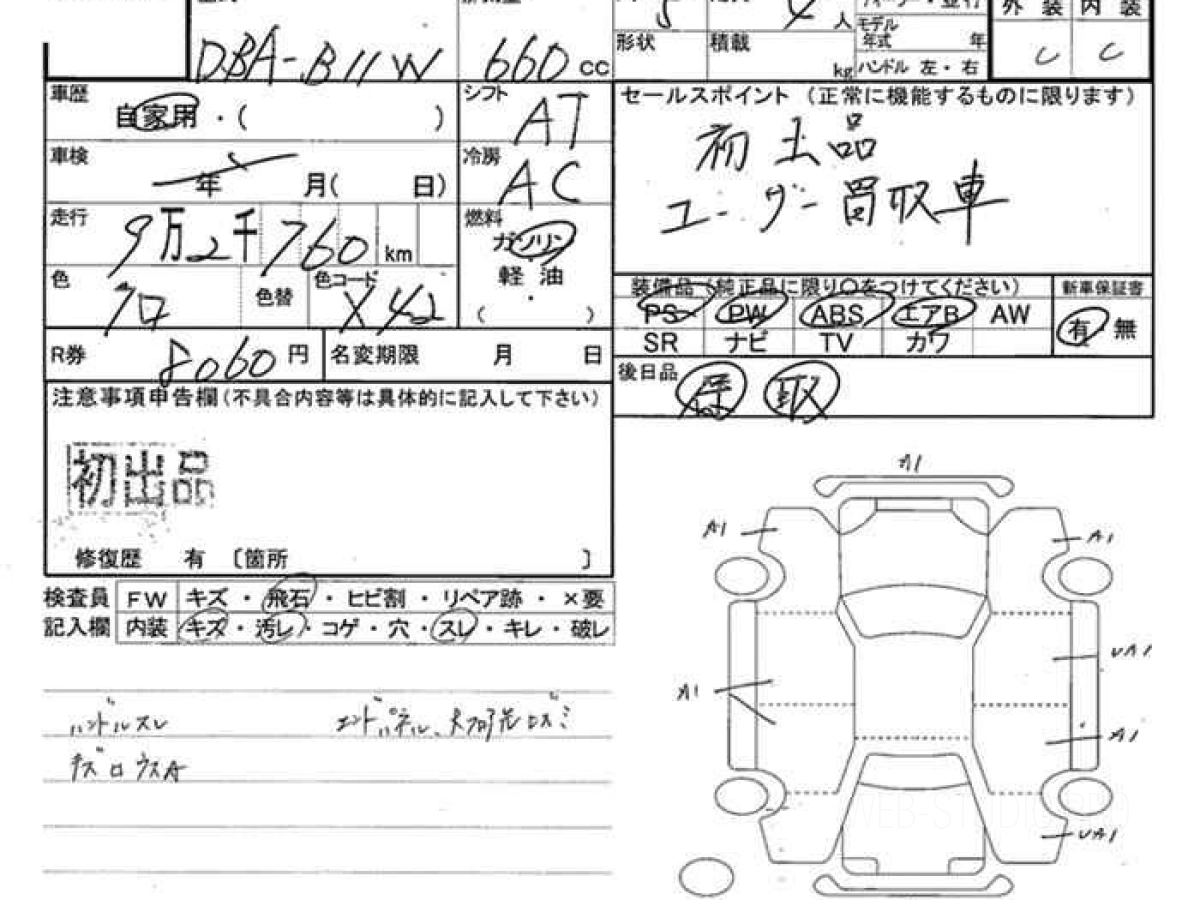 DBA-B11W
660 cc
5
4 人
モデル
年式 年
形状
積載 kg
ハンドル 左・右
外装 内装
C C
車歴
自家用・( )
シフト
AT
車検
年 月( 日)
冷房
AC
走行
9万2千760 km
燃料
ガソリン
軽油
・
( )
色
クロ
色替
色コード
X42
R券
8060 円
名変期限 月 日
セールスポイント (正常に機能するものに限ります)
初出品
ユーザー買取車
装備品(純正品に限り〇をつけてください)
新車保証書
PS PW ABS エアB AW
有 無
SR ナビ TV カワ
後日品
保 取
注意事項申告欄(不具合内容等は具体的に記入して下さい)
初出品
修復歴 有 〔箇所 〕
検査員
記入欄
FW キズ・飛石・ヒビ割・リペア跡・×要
内装 キズ・汚レ・コゲ・穴・スレ・キレ・破レ
ハンドルスレ
キズロウスA
エンドパネル、
A1
A1
A1
UA1
A1
A1
UA1
WEB-ST